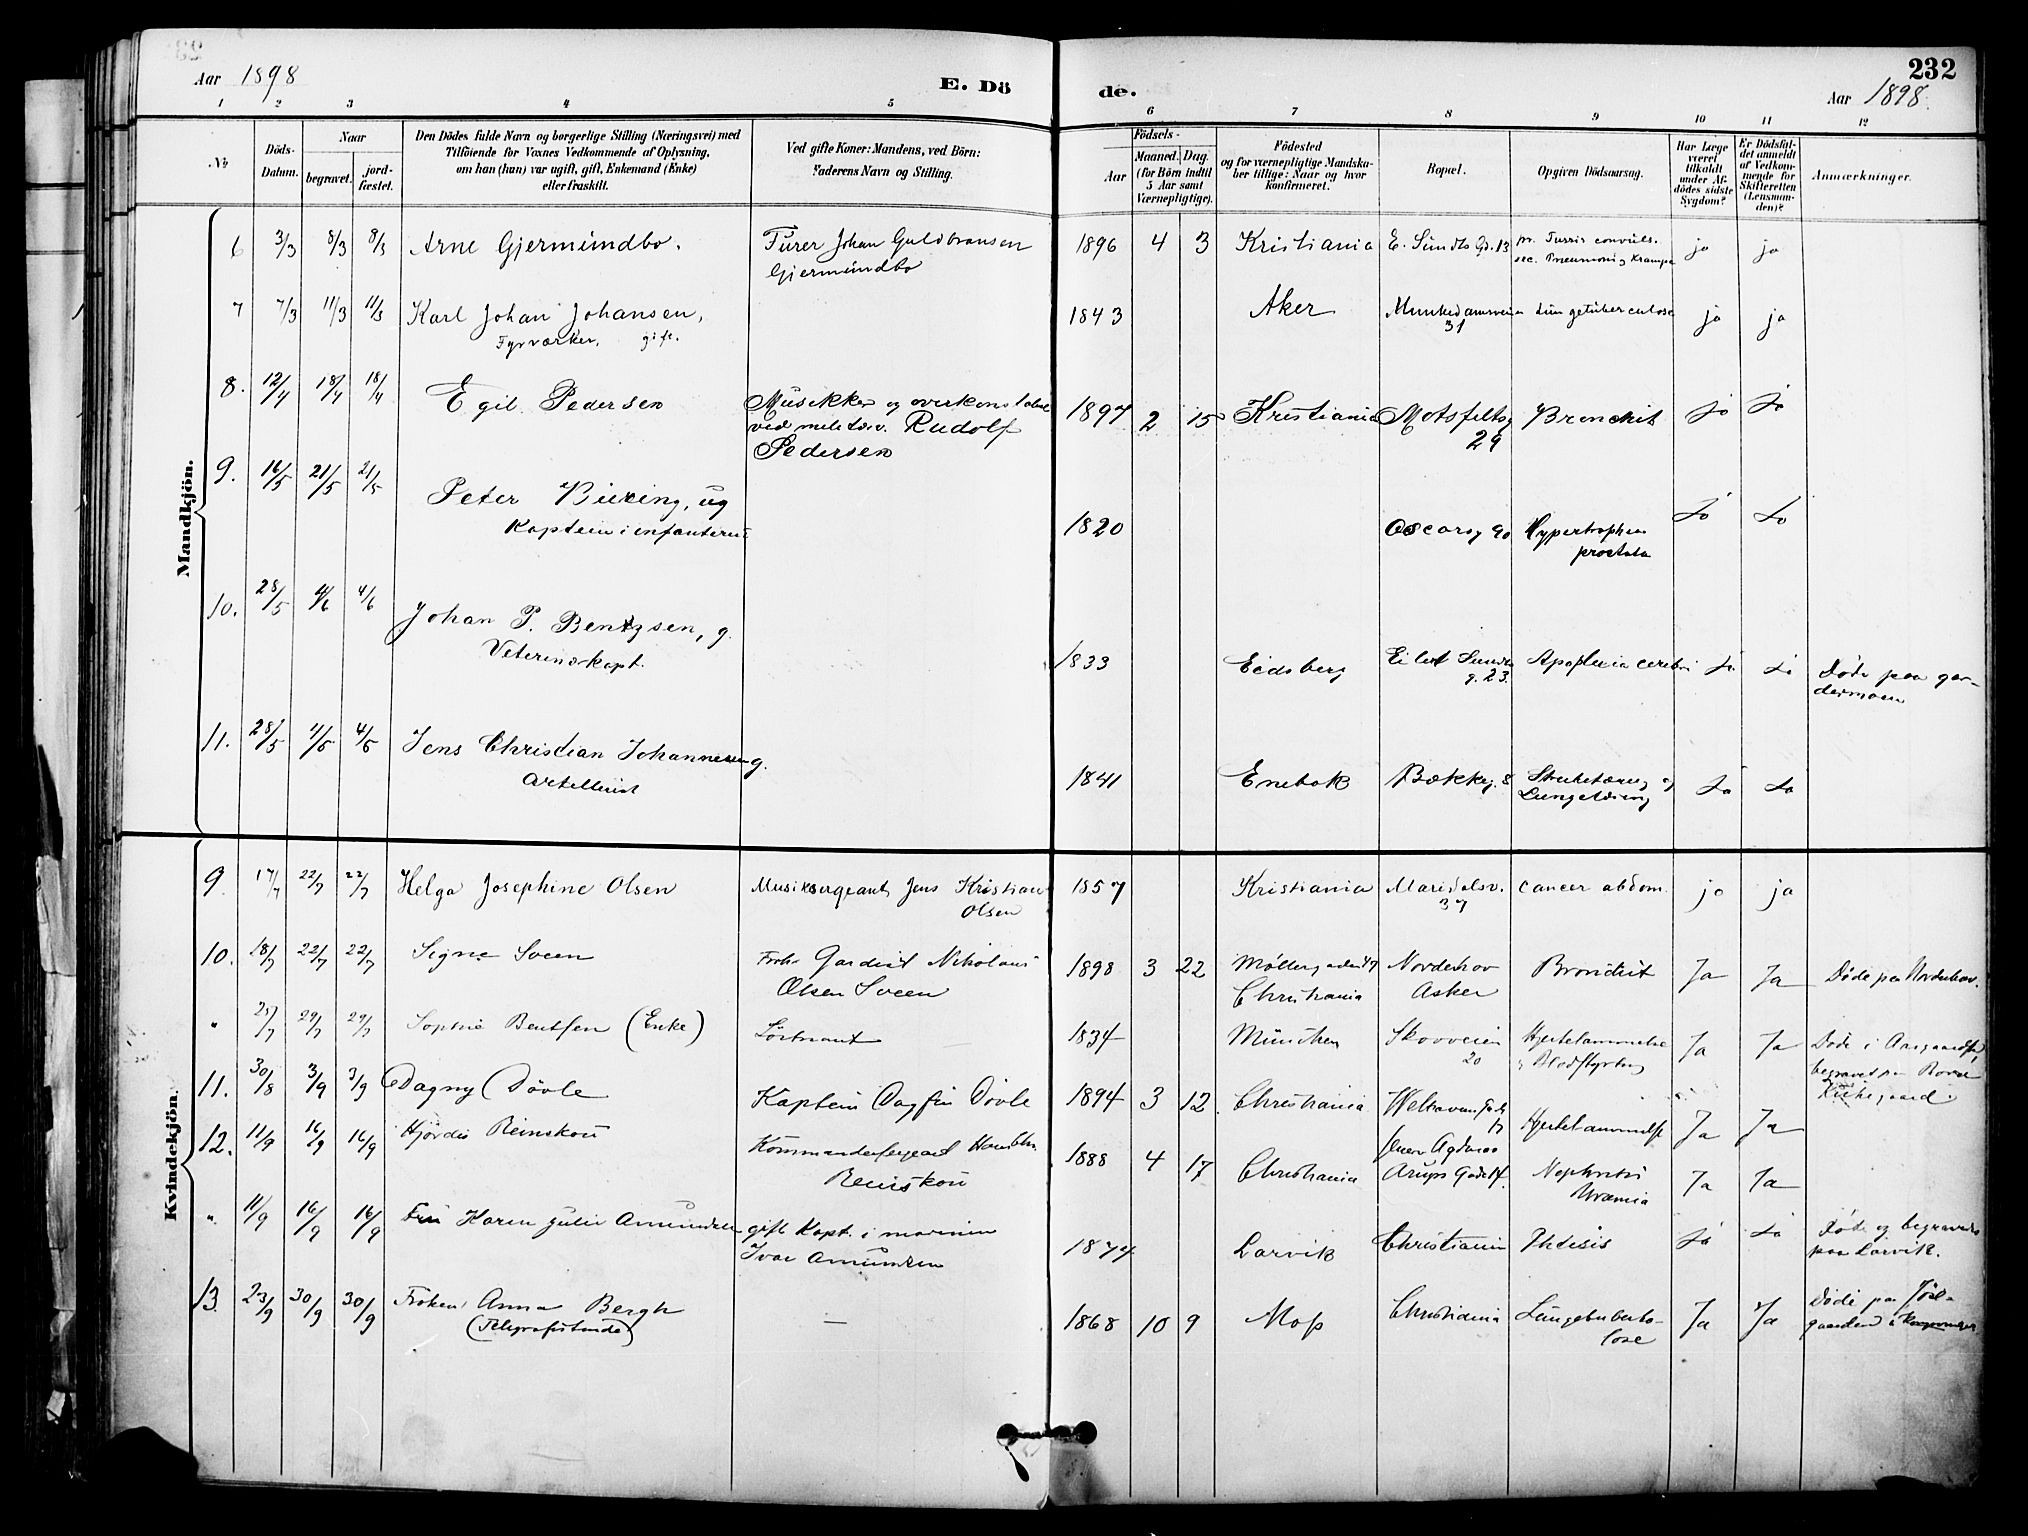 232
Aar 1898
E. Dö
de.
Aar 1898.
1 2 3 4 5 6 7 8 9 10 11 12
No
Döds-
Datum.
Naar
begravet.
jord-
fæstet.
Den Dödes fulde Navn og borgerlige Stilling (Næringsvei) med
Tilföiende for Voxnes Vedkommende af Oplysning,
om han (hun) var ugift, gift, Enkemand (Enke)
eller fraskilt.
Ved gifte Koner: Mandens, ved Börn:
Faderens Navn og Stilling.
Födsels-
Aar
Maaned.
Dag.
(for Börn indtil
5 Aar samt
Værnepligtige).
Födested
og for værnepligtige Mandska-
ber tillige: Naar og hvor
konfirmeret.
Bopæl.
Opgiven Dödsaarsag.
Har Læge
været
tilkaldt
under Af-
dödes sidste
Sygdom?
Er Dödsfal-
det anmeldt
af Vedkom-
mende for
Skifteretten
(Lensman-
den)?
Anmærkninger.
Mandkjön.
6 3/3 8/3 8/3 Arne Gjermundbo. Furer Johan Guldbransen 1896 4 3 Kristiania E. Sundts Gd. 13 pr. Tussis convuls. ja ja
Gjermundbo sec. Pneumoni og Krampe
7 7/3 11/3 11/3 Karl Johan Johansen, 1843 Aker Munkedamsveien lungetuberculose ja ja
Fyrværker, gift. 31
8. 12/4 18/4 18/4 Egil Pedersen Musikker og overkonstabel 1897 2 15 Kristiania Motsfeltsg Bronchit Ja Ja
ved Rudolf 29
Pedersen
9. 16/5 21/5 21/5 Peter Buxing, ug 1820 Oscarsg 90 Hypertrophia Ja Ja
Kaptein i infanteriet prostata
10. 28/5 4/6 4/6 Johan P. Bentzsen, g. 1833 Eidsberg Eilert Sundts Apoplexia cerebri Ja Ja Døde paa gar-
Veterinærkapt. g. 23. dermoen
11. 28/5 4/6 4/6 Jens Christian Johannesen g. 1841 Enebak Bækkeg. 8 Strubetæring og Ja Ja
Artillerist Lungetæring
Kvindekjön.
9 17/7 22/7 22/7 Helga Josephine Olsen Musiksergeant Jens Kristian 1857 Kristiania Maridalsv. cancer abdom. ja ja
Olsen 37
10. 18/7 22/7 22/7 Signe Sveen Gardist Nikolaus 1898 3 22 Møllergaden 49 Norderhov Bronchit Ja Ja Døde paa Norderhov.
Olsen Sveen Christiania Asker
" 25/7 29/7 29/7 Sophie Bentsen (Enke) 1834 München Skovveien Hjertelammelse Ja Ja Døde i
20 og Blodstyrtning begravet paa
Kirkegaard.
11. 30/8 3/9 3/9 Dagny Døvle Kaptein Dagfin Døvle 1894 3 12. Christiania Hjertelammelse Ja Ja
12. 11/9 16/9 16/9 Hjørdis Reinskou Kommandersergeant 1888 4 17 Christiania Arups Gade Nephritis Ja Ja
Reinskou Uræmia
" 11/9 16/9 16/9 Fru Karen Julie Amundsen gift Kapt. i marinen 1874 Larvik Christiania Phtisis Ja Ja Døde og begravedes
Ivar Amundsen paa Larvik.
13. 23/9 30/9 30/9 Frøken Anna Bergh — 1868 10 9 Moss Christiania Lungetuberku- Ja Ja Døde paa
(Telegrafistinde) lose